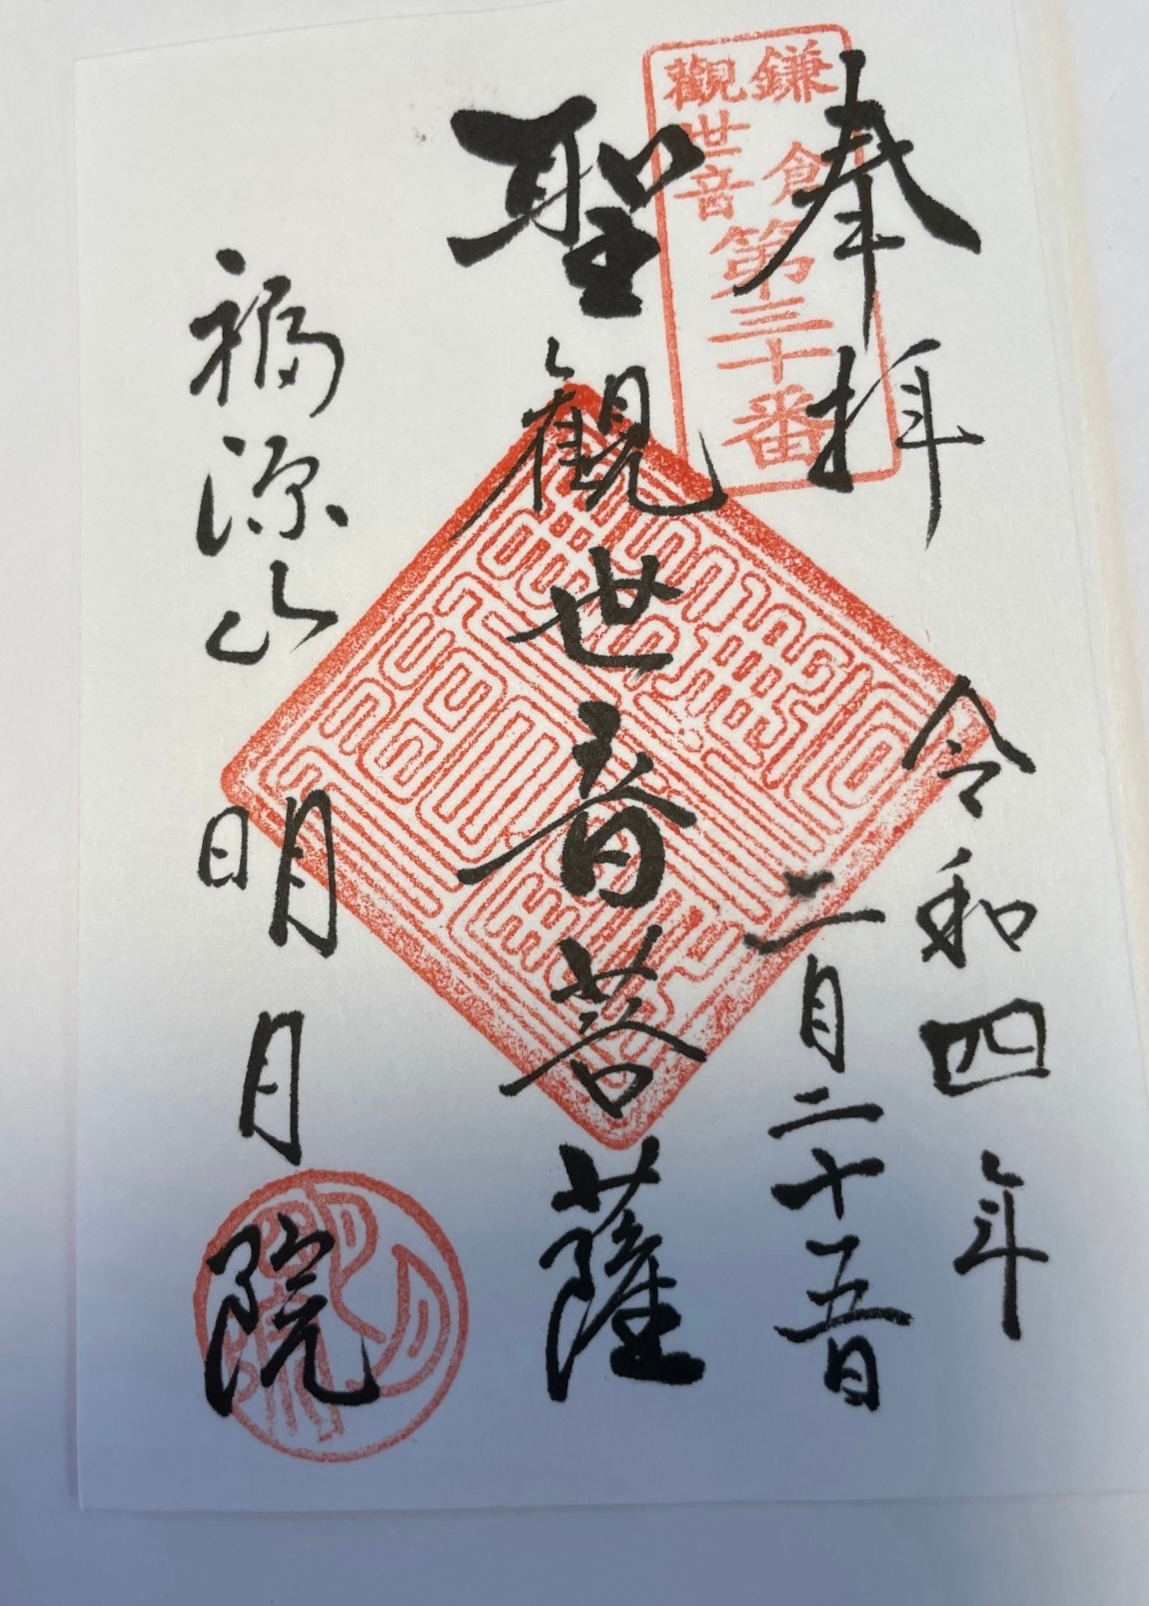 奉拝
令和四年
二月二十五日
鎌倉
觀世音
第三十番
聖観世音菩薩
福源山
明月院